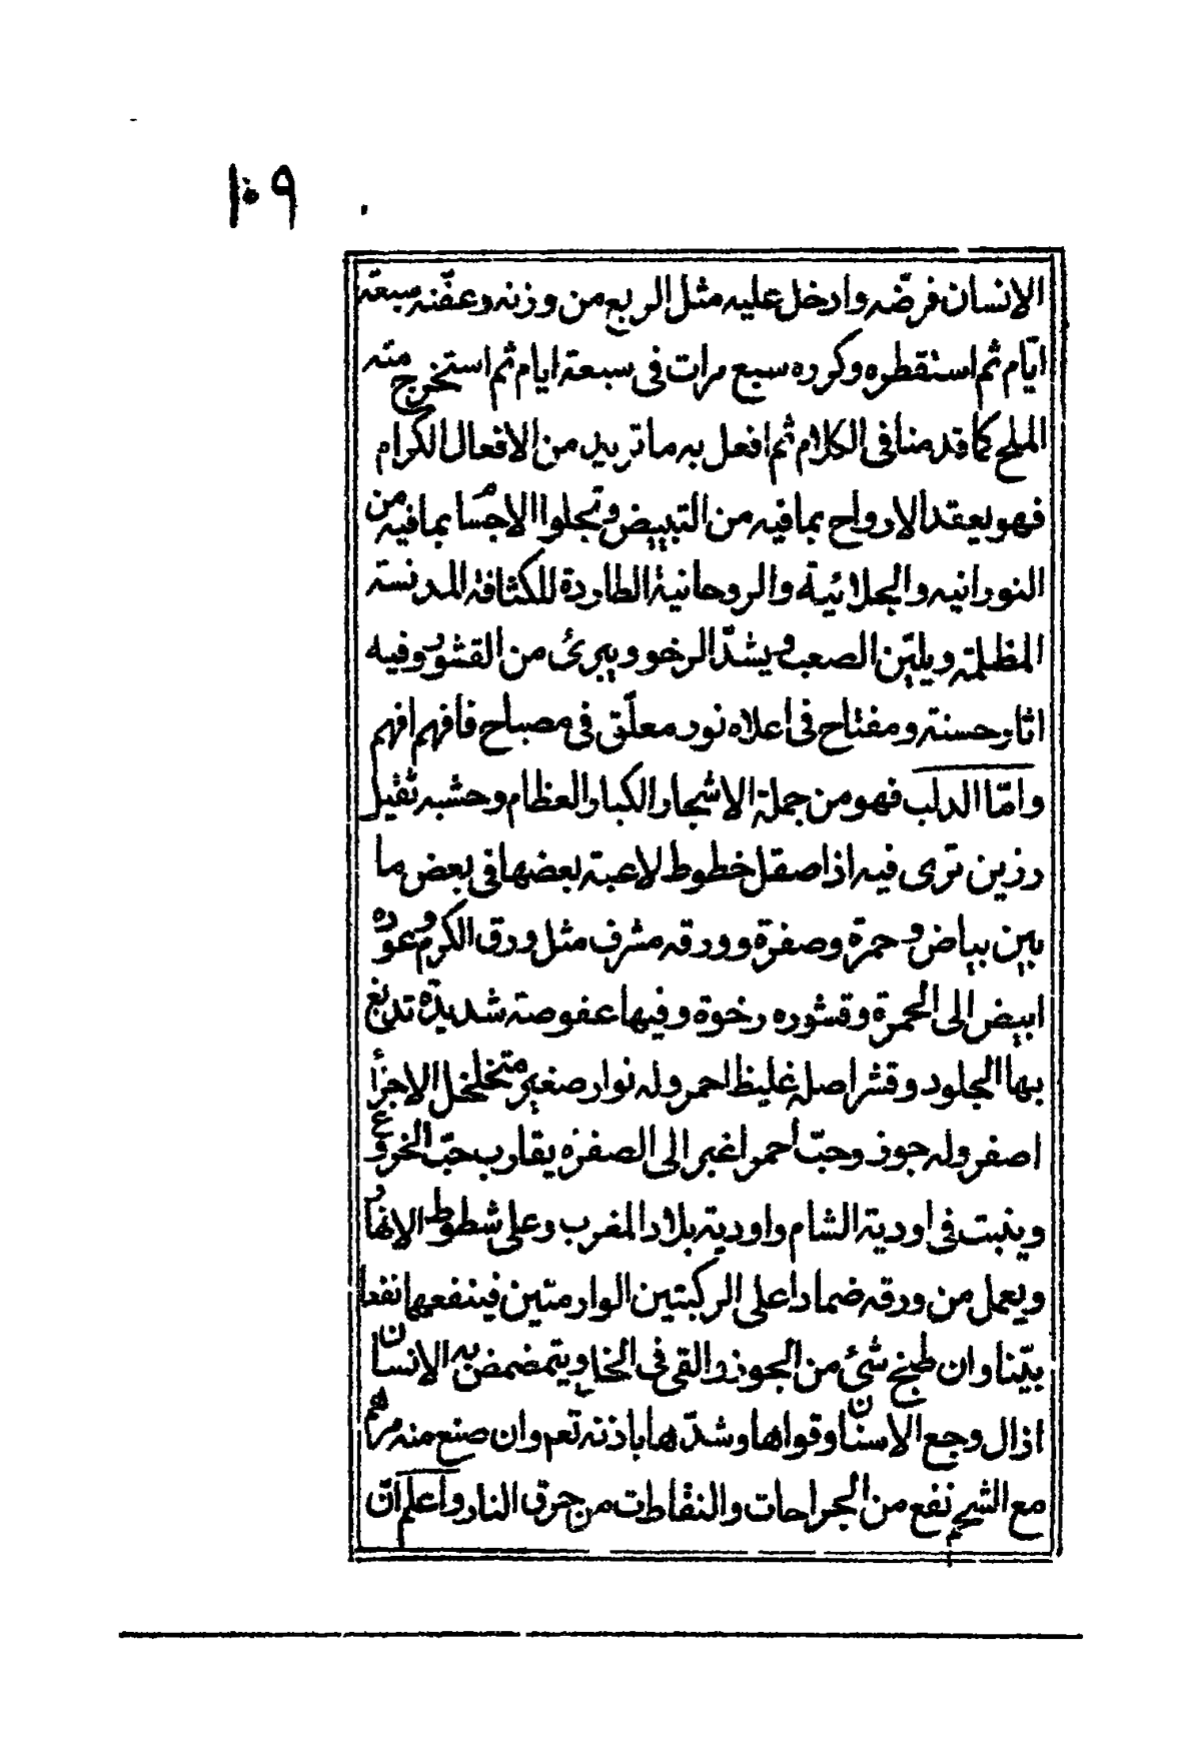 ١٠٩
الانسان فرضّه وادخل عليه مثل الربع من وزنه وعفّنه سبعة
ايّام ثم استقطره وكرره سبع مرات فى سبعة ايام ثم استخرج منه
الملح كما قدمنا فى الكلام ثم افعل به ما تريد من الافعال الكرام
فهو يعقد الارواح بما فيه من التبييض وتجلوا الاجسام بما فيه من
النورانيه والجلائية والروحانية الطاردة للكثافة المدنسة
المظلمة ويليّن الصعب ويشدّ الرخو ويبرئ من القشور وفيه
اثار حسنة ومفتاح فى اعلاه نور معلّق فى مصباح فافهم افهم
وامّا الدلب فهو من جملة الاشجار الكبار العظام وخشبه ثقيل
رزين ترى فيه اذا صقل خطوط لاعبة بعضها فى بعض ما
بين بياض وحمرة وصفرة وورقه مشرف مثل ورق الكرم وعوده
ابيض الى الحمرة وقشوره رخوة وفيها عفوصة شديدة تدبغ
بها الجلود وقشر اصله غليظ احمر وله نوار صغير متخلخل الاجزأ
اصفر وله جوز وحبّ احمر اغبر الى الصفرة يقارب حبّ الخروع
وينبت فى اودية الشام واودية بلاد المغرب وعلى شطوط الانهار
ويعمل من ورقه ضمادا على الركبتين الوارمتين فينفعها نفعا
بيّنا وان طبخ شئ من الجوز والقى فى الخل ويتمضمض به الانسان
ازال وجع الاسنان وقواها وشدّها باذنه تعم وان صنع منه مرهم
مع الشحم نفع من الجراحات والنفاطات من حرق النار واعلم انّ